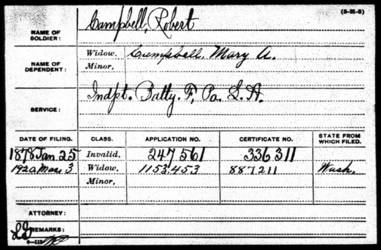 (3-35-6)
NAME OF SOLDIER: Campbell, Robert
NAME OF DEPENDENT: Widow, Campbell, Mary A.
Minor,
SERVICE: Indpt. Batty. F, Pa. L. A.
DATE OF FILING. CLASS. APPLICATION NO. CERTIFICATE NO. STATE FROM WHICH FILED.
1878 Jan 25 Invalid, 247561 336311
1920 Mar 3 Widow, 1153453 887211 Wash.
Minor,
ATTORNEY:
REMARKS: